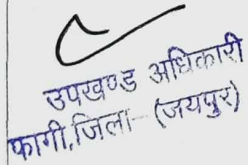 उपखण्ड अधिकारी
फागी,जिला-(जयपुर)